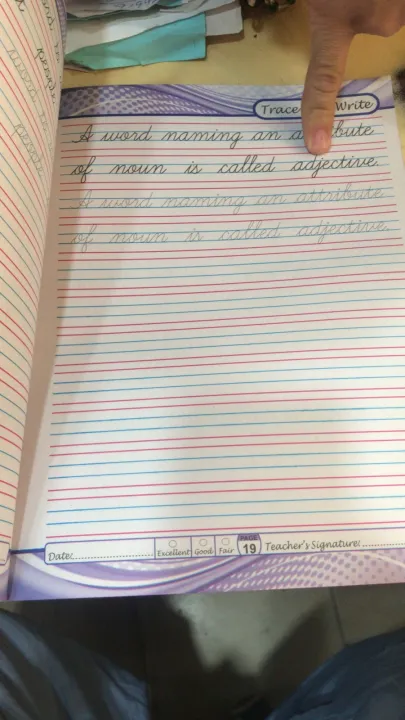 Trace Write
A word naming an attribute
of noun is called adjective.
A word naming an attribute
of noun is called adjective.
Date:
Excellent Good Fair PAGE 19 Teacher's Signature: